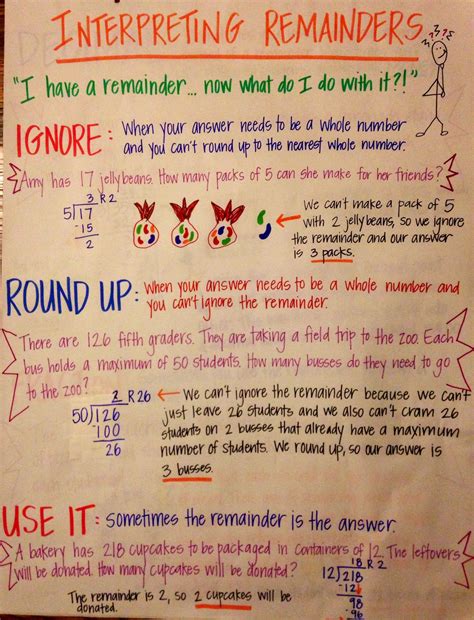 INTERPRETING REMAINDERS
? ? ?
"I have a remainder... now what do I do with it?!"
IGNORE: When your answer needs to be a whole number
and you can't round up to the nearest whole number.
Amy has 17 jellybeans. How many packs of 5 can she make for her friends?
3 R 2
5)17
-15
2
We can't make a pack of 5
with 2 jellybeans, so we ignore
the remainder and our answer
is 3 packs.
ROUND UP: When your answer needs to be a whole number and
you can't ignore the remainder.
There are 126 fifth graders. They are taking a field trip to the zoo. Each
bus holds a maximum of 50 students. How many busses do they need to go
to the zoo?
2 R 26
50)126
100
26
We can't ignore the remainder because we can't
just leave 26 students and we also can't cram 26
students on 2 busses that already have a maximum
number of students. We round up, so our answer is
3 busses.
USE IT: Sometimes the remainder is the answer.
A bakery has 218 cupcakes to be packaged in containers of 12. The leftovers
will be donated. How many cupcakes will be donated?
18 R 2
12)218
-12
98
-96
The remainder is 2, so 2 cupcakes will be
donated.